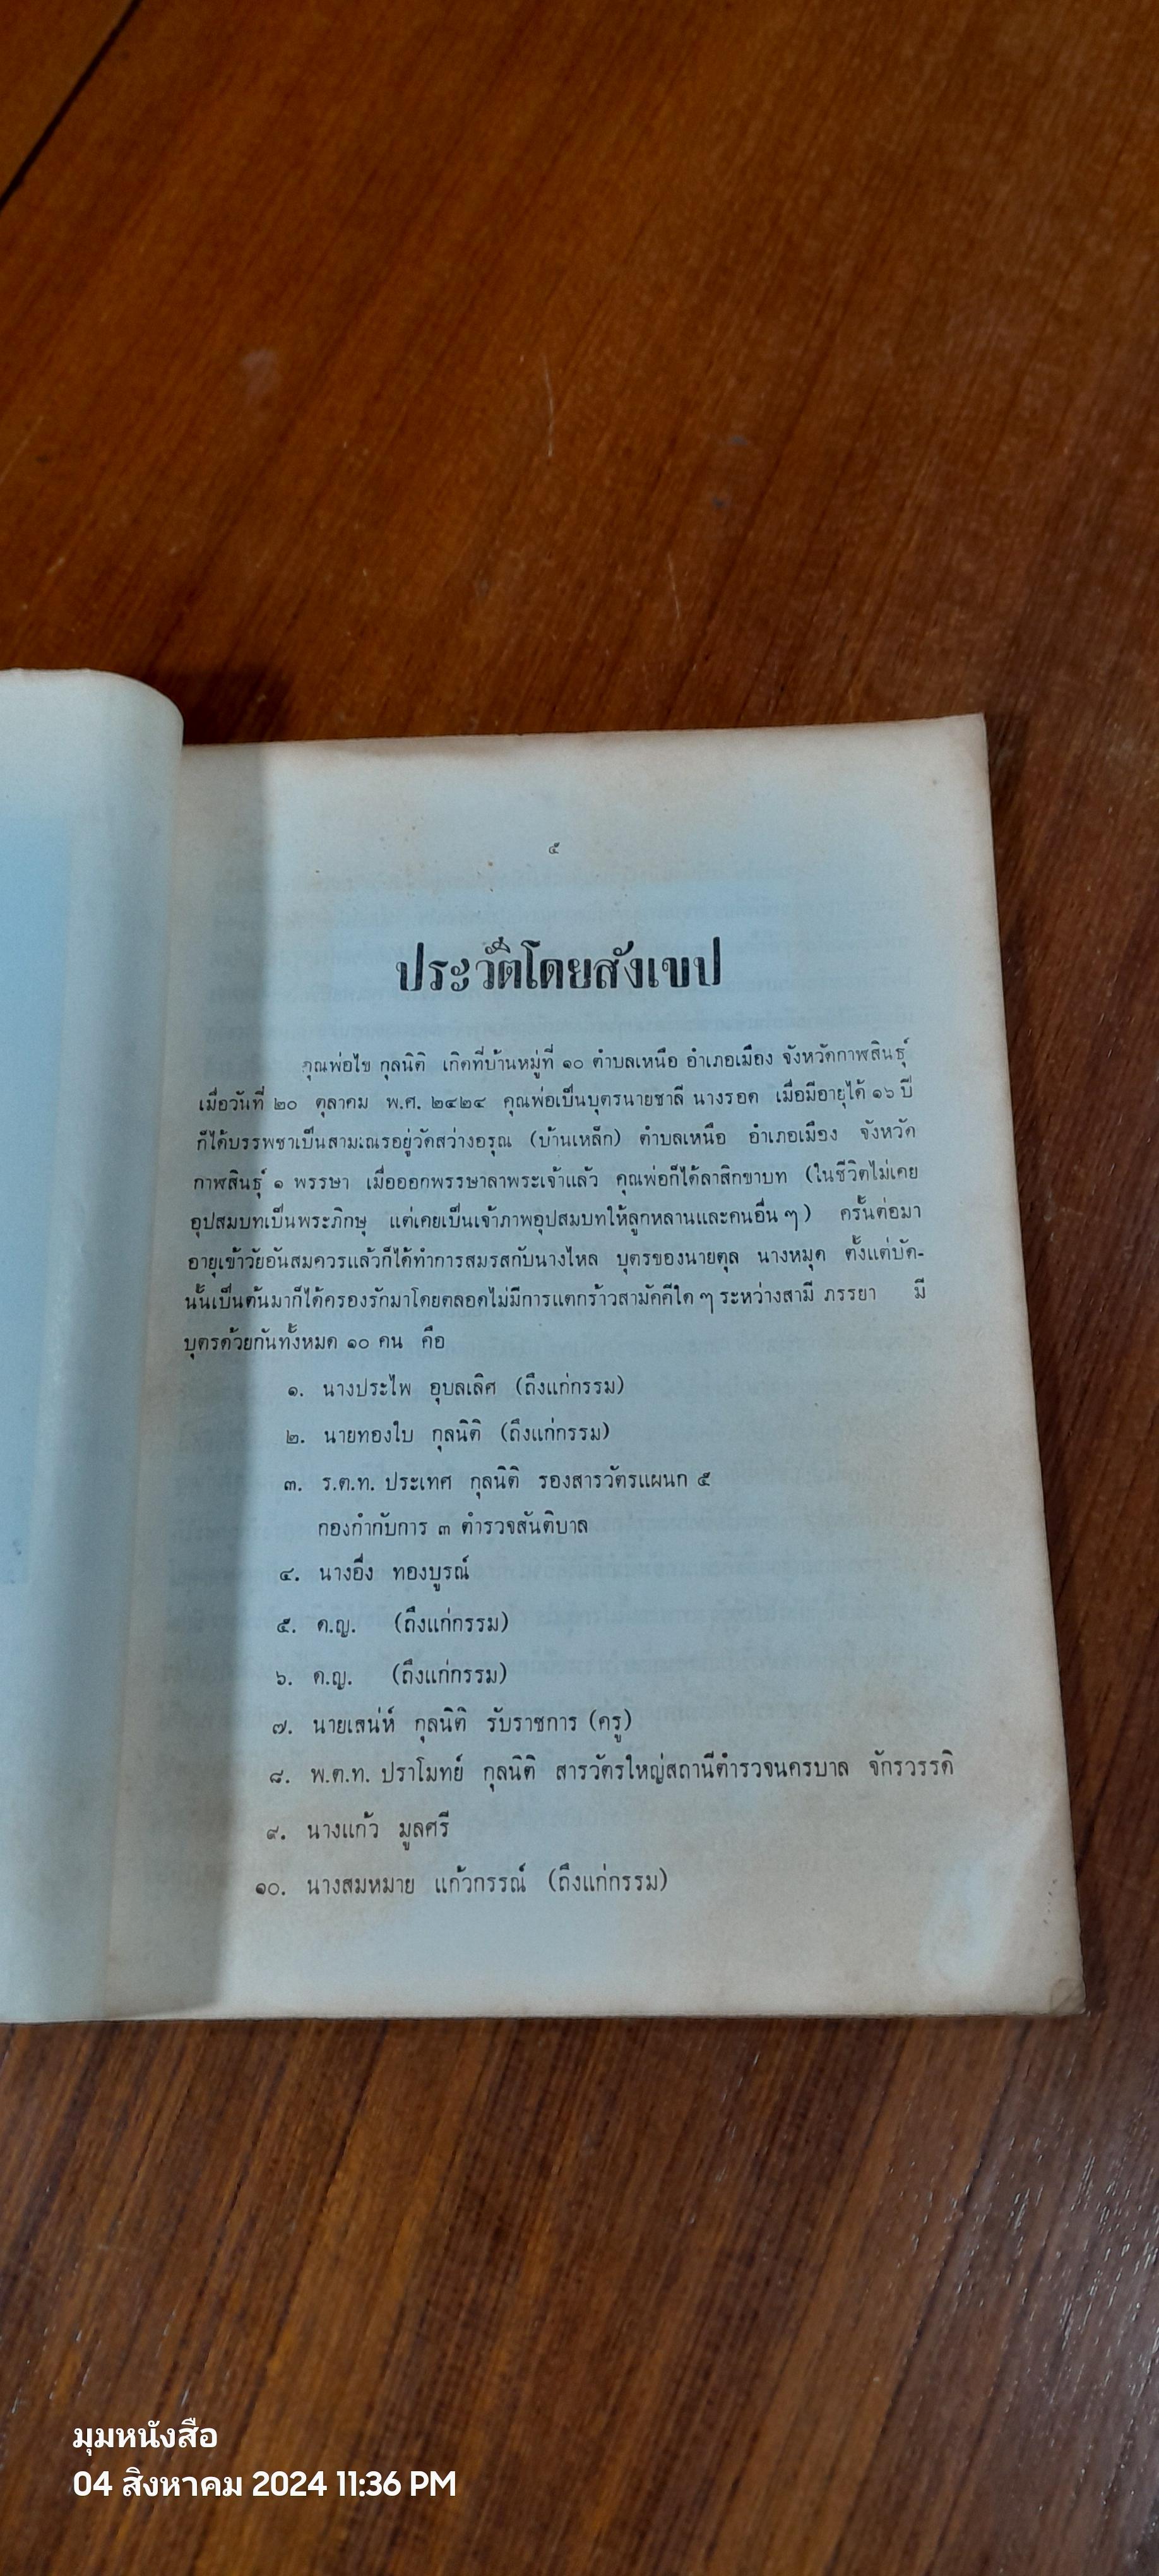 ๕
ประวัติโดยสังเขป
คุณพ่อไข กุลนิติ เกิดที่บ้านหมู่ที่ ๑๐ ตำบลเหนือ อำเภอเมือง จังหวัดกาฬสินธุ์
เมื่อวันที่ ๒๐ ตุลาคม พ.ศ. ๒๔๒๔ คุณพ่อเป็นบุตรนายชาลี นางรอด เมื่อมีอายุได้ ๑๖ ปี
ก็ได้บรรพชาเป็นสามเณรอยู่วัดสว่างอรุณ (บ้านเหล็ก) ตำบลเหนือ อำเภอเมือง จังหวัด
กาฬสินธุ์ ๑ พรรษา เมื่อออกพรรษาลาพระเจ้าแล้ว คุณพ่อก็ได้ลาสิกขาบท (ในชีวิตไม่เคย
อุปสมบทเป็นพระภิกษุ แต่เคยเป็นเจ้าภาพอุปสมบทให้ลูกหลานและคนอื่น ๆ) ครั้นต่อมา
อายุเข้าวัยอันสมควรแล้วก็ได้ทำการสมรสกับนางไหล บุตรของนายตุล นางหมุด ตั้งแต่บัด-
นั้นเป็นต้นมาก็ได้ครองรักมาโดยตลอดไม่มีการแตกร้าวสามัคคีใด ๆ ระหว่างสามี ภรรยา มี
บุตรด้วยกันทั้งหมด ๑๐ คน คือ
๑. นางประไพ อุบลเลิศ (ถึงแก่กรรม)
๒. นายทองใบ กุลนิติ (ถึงแก่กรรม)
๓. ร.ต.ท. ประเทศ กุลนิติ รองสารวัตรแผนก ๕
กองกำกับการ ๓ ตำรวจสันติบาล
๔. นางอึ่ง ทองบูรณ์
๕. ด.ญ. (ถึงแก่กรรม)
๖. ด.ญ. (ถึงแก่กรรม)
๗. นายเสน่ห์ กุลนิติ รับราชการ (ครู)
๘. พ.ต.ท. ปราโมทย์ กุลนิติ สารวัตรใหญ่สถานีตำรวจนครบาล จักรวรรดิ
๙. นางแก้ว มูลศรี
๑๐. นางสมหมาย แก้วกรรณ์ (ถึงแก่กรรม)
มุมหนังสือ
04 สิงหาคม 2024 11:36 PM